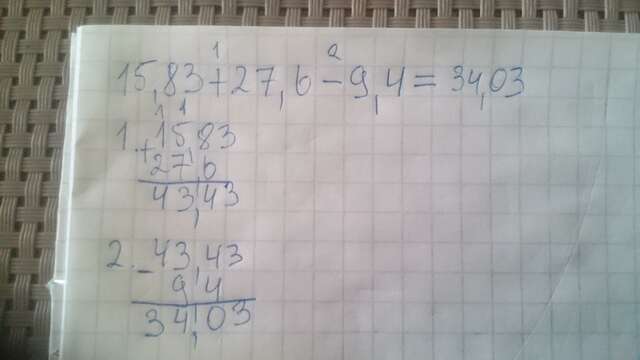 1 2
15,83+27,6-9,4=34,03
1 1
1. +15,83
27,6
43,43
2. -43,43
9,4
34,03